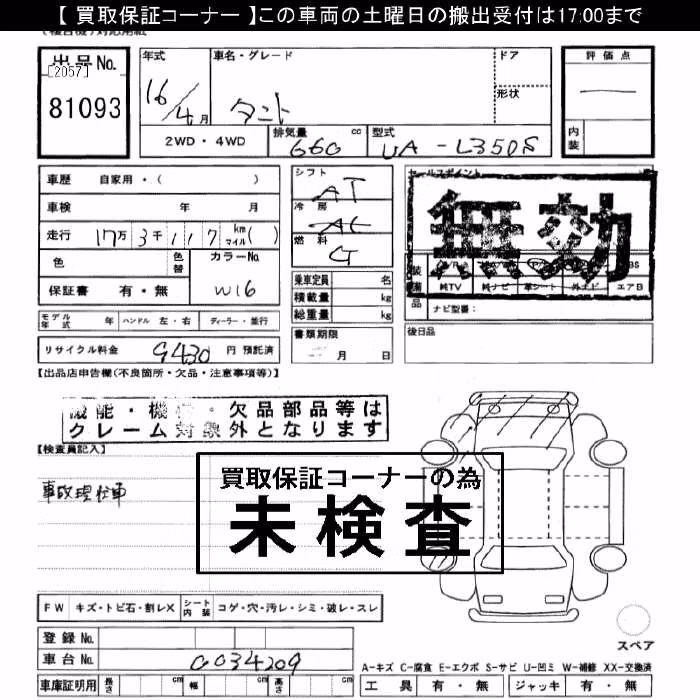 【 買取保証コーナー 】この車両の土曜日の搬出受付は17:00まで
出品No.
[2057]
81093
年式
16/4月
車名・グレード
タント
ドア
形状
評価点
内装
2WD・4WD
排気量 660 cc
型式 UA-L350S
車歴 自家用・( )
車検 年 月
走行 17万3千117 km マイル( )
色 色替 カラーNo. W16
保証書 有・無
シフト AT
冷房 AC
燃料 G
セールスポイント
無効
乗車定員 名
積載量 kg
総重量 kg
装備品
純TV 純ナビ 革シート 外エビ エアB
ナビ型番:
モデル年式 年 ハンドル 左・右 ディーラー・並行
書類期限 月 日
後日品
リサイクル料金 9430 円 預託済
【出品店申告欄(不良箇所・欠品・注意事項等)】
機能・機 ・欠品部品等は
クレーム対象外となります
【検査員記入】
買取保証コーナーの為
未検査
事故現状車
FW キズ・トビ石・割レX シート内装 コゲ・穴・汚レ・シミ・破レ・スレ
登録No.
車台No. 0034209
スペア
A-キズ C-腐食 E-エクボ S-サビ U-凹ミ W-補修 XX-交換済
車庫証明用 長さ cm 幅 cm 高さ cm
工具 有・無 ジャッキ 有・無